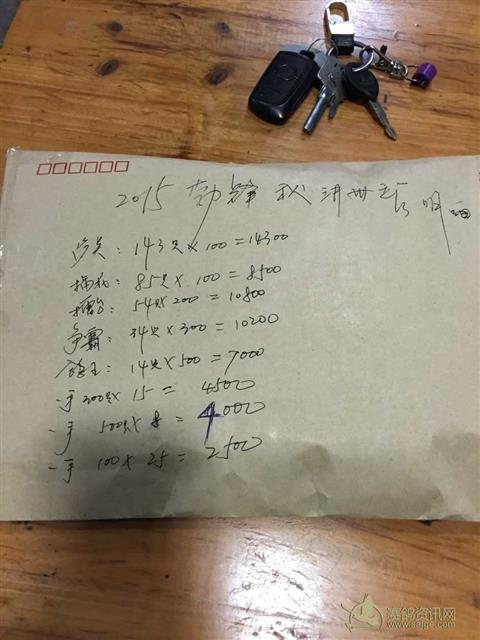 2015 劲翔 秋 进 明细
: 143只×100=14300
: 85只×100=8500
: 54只×200=10800
争霸: 34只×300=10200
鸽王: 14只×500=7000
一手 300只× 15= 4500
一手 500只×8= 4000
一手 100×25= 2500
赛鸽资讯网
www.saijpc.com